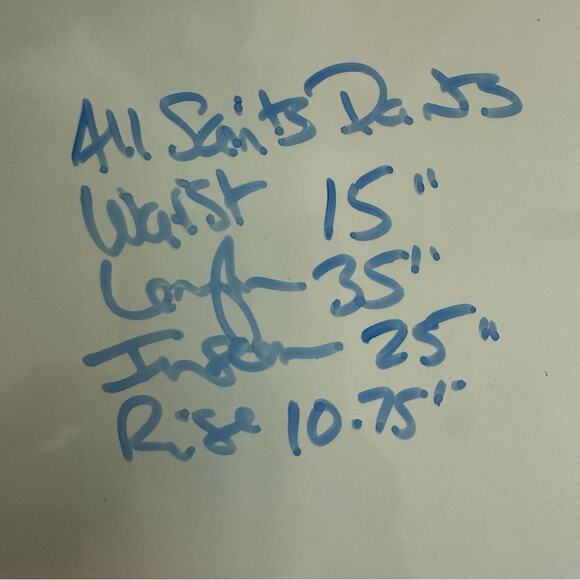 All Saints Pants
Waist 15"
Length 35"
Inseam 25"
Rise 10.75"